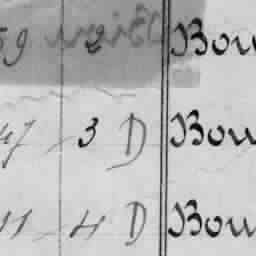 59 2 Bou
47 3 D Bou
11 4 D Bou